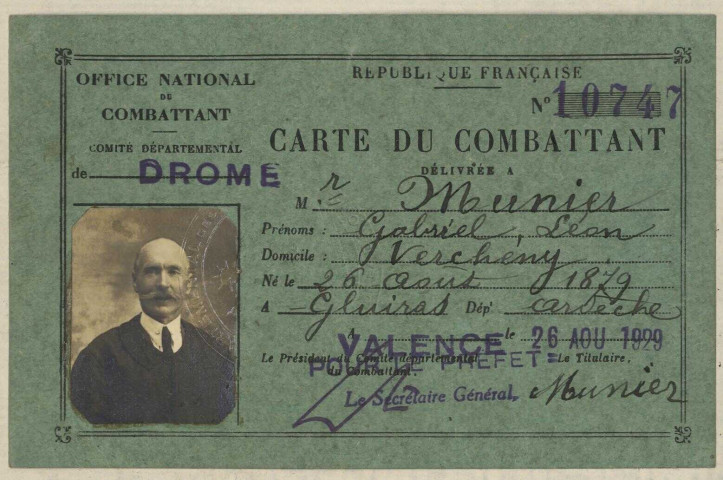 OFFICE NATIONAL
DU
COMBATTANT
COMITÉ DÉPARTEMENTAL
de DROME
RÉPUBLIQUE FRANÇAISE
No 10747
CARTE DU COMBATTANT
DÉLIVRÉE A
M r Munier
Prénoms : Gabriel, Léon
Domicile : Vercheny
Né le 26 Août 1879
A Gluiras Dépt Ardèche
A VALENCE le 26 AOU 1929
Le Président du Comité départemental
du Combattant,
POUR LE PREFET =
Le Titulaire,
Le Secrétaire Général,
Munier